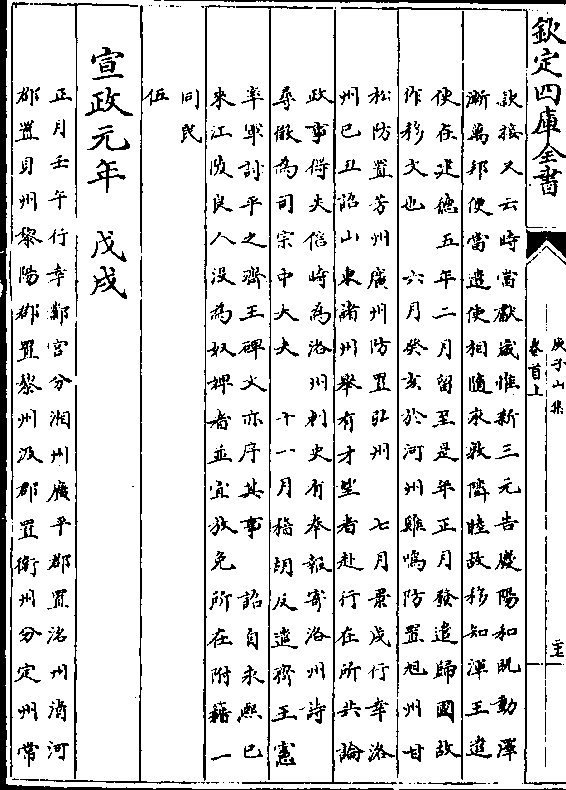 欽定四庫全書
庾子山集
卷首上
款接又云時當獻歲惟新三元告慶陽和既動澤
漸萬邦便當遣使相隨來敦隣睦故移知渾王遣
使在建德五年二月留至是年正月發遣歸國故
作移文也 六月癸亥於河州雞鳴防置旭州甘
松防置芳州廣州防置弘州 七月景戌行幸洛
州已丑詔山東諸州舉有才望者赴行在所共論
政事得失信時為洛州刺史有奉報寄洛州詩
尋徴為司宗中大夫 十一月稽胡反遣齊王憲
率軍討平之齊王碑文亦序其事 詔自永熙已
來江陵良人没為奴婢者並宜放免所在附籍一
同民
伍
宣政元年 戊戌
正月壬午行幸鄴宮分湘州廣平郡置洺州清河
郡置貝州黎陽郡置黎州汲郡置衛州分定州常